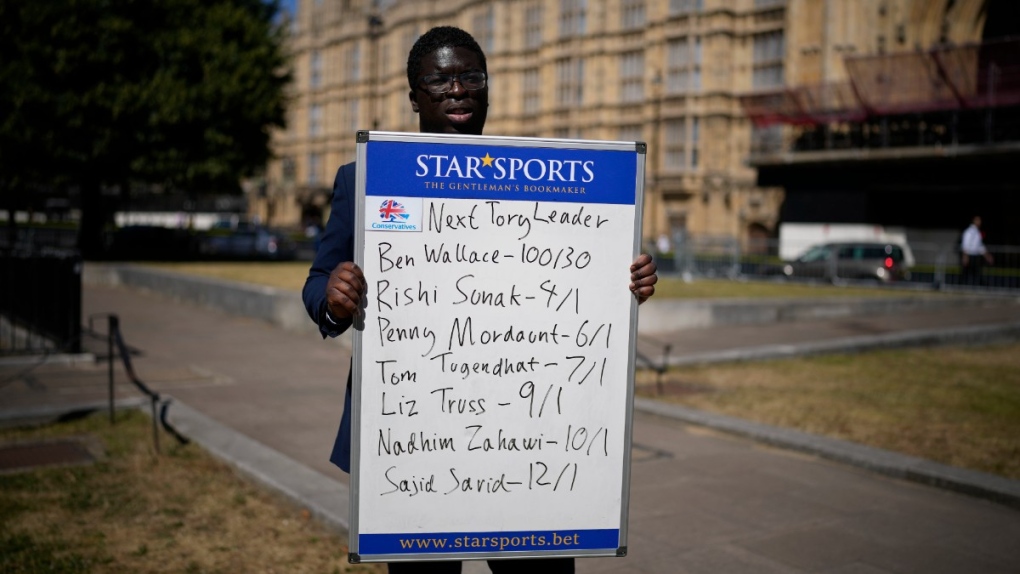 STAR★SPORTS
THE GENTLEMAN'S BOOKMAKER
Conservatives
Next Tory Leader
Ben Wallace - 100/30
Rishi Sunak - 4/1
Penny Mordaunt - 6/1
Tom Tugendhat - 7/1
Liz Truss - 9/1
Nadhim Zahawi - 10/1
Sajid Javid - 12/1
www.starsports.bet